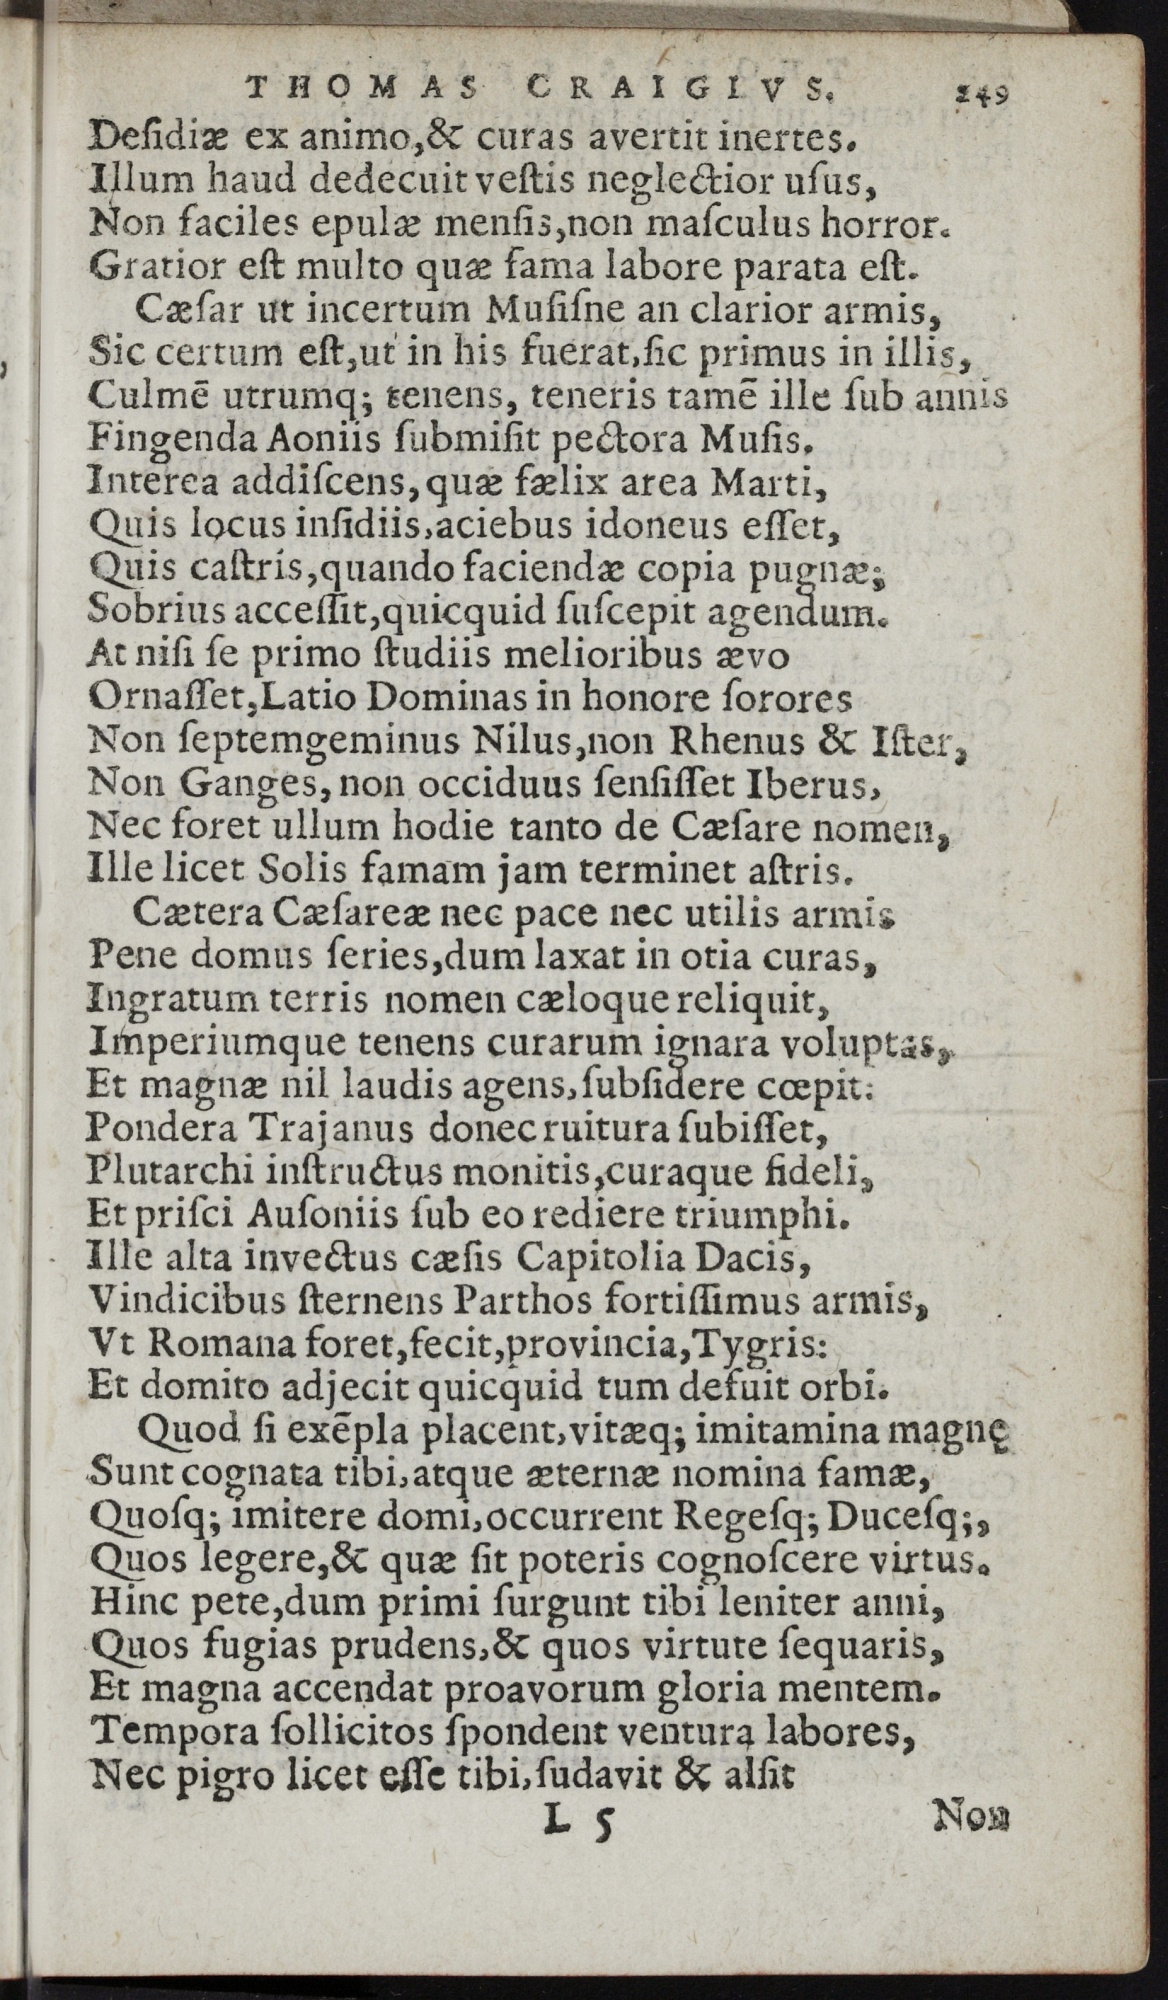 THOMAS CRAIGIVS. 249
Deſidiæ ex animo,& curas avertit inertes.
Illum haud dedecuit veſtis neglectior uſus,
Non faciles epulæ menſis,non maſculus horror.
Gratior eſt multo quæ fama labore parata eſt.
Cæſar ut incertum Muſiſne an clarior armis,
Sic certum eſt,ut in his fuerat,ſic primus in illis,
Culmē utrumq; tenens, teneris tamē ille ſub annis
Fingenda Aoniis ſubmiſit pectora Muſis.
Interea addiſcens, quæ fælix area Marti,
Quis locus inſidiis,aciebus idoneus eſſet,
Quis caſtris,quando faciendæ copia pugnæ;
Sobrius acceſſit,quicquid ſuſcepit agendum.
At niſi ſe primo ſtudiis melioribus ævo
Ornaſſet,Latio Dominas in honore ſorores
Non ſeptemgeminus Nilus,non Rhenus & Iſter,
Non Ganges, non occiduus ſenſiſſet Iberus,
Nec foret ullum hodie tanto de Cæſare nomen,
Ille licet Solis famam jam terminet aſtris.
Cætera Cæſareæ nec pace nec utilis armis
Pene domus ſeries,dum laxat in otia curas,
Ingratum terris nomen cæloque reliquit,
Imperiumque tenens curarum ignara voluptas,
Et magnæ nil laudis agens,ſubſidere cœpit:
Pondera Trajanus donec ruitura ſubiſſet,
Plutarchi inſtructus monitis,curaque fideli,
Et priſci Auſoniis ſub eo rediere triumphi.
Ille alta invectus cæſis Capitolia Dacis,
Vindicibus ſternens Parthos fortiſſimus armis,
Vt Romana foret,fecit,provincia,Tygris:
Et domito adjecit quicquid tum defuit orbi.
Quod ſi exēpla placent,vitæq; imitamina magnę
Sunt cognata tibi,atque æternæ nomina famæ,
Quoſq; imitere domi,occurrent Regeſq; Duceſq;,
Quos legere,& quæ ſit poteris cognoſcere virtus.
Hinc pete,dum primi ſurgunt tibi leniter anni,
Quos fugias prudens,& quos virtute ſequaris,
Et magna accendat proavorum gloria mentem.
Tempora ſollicitos ſpondent ventura labores,
Nec pigro licet eſſe tibi,ſudavit & alſit
L 5 Non